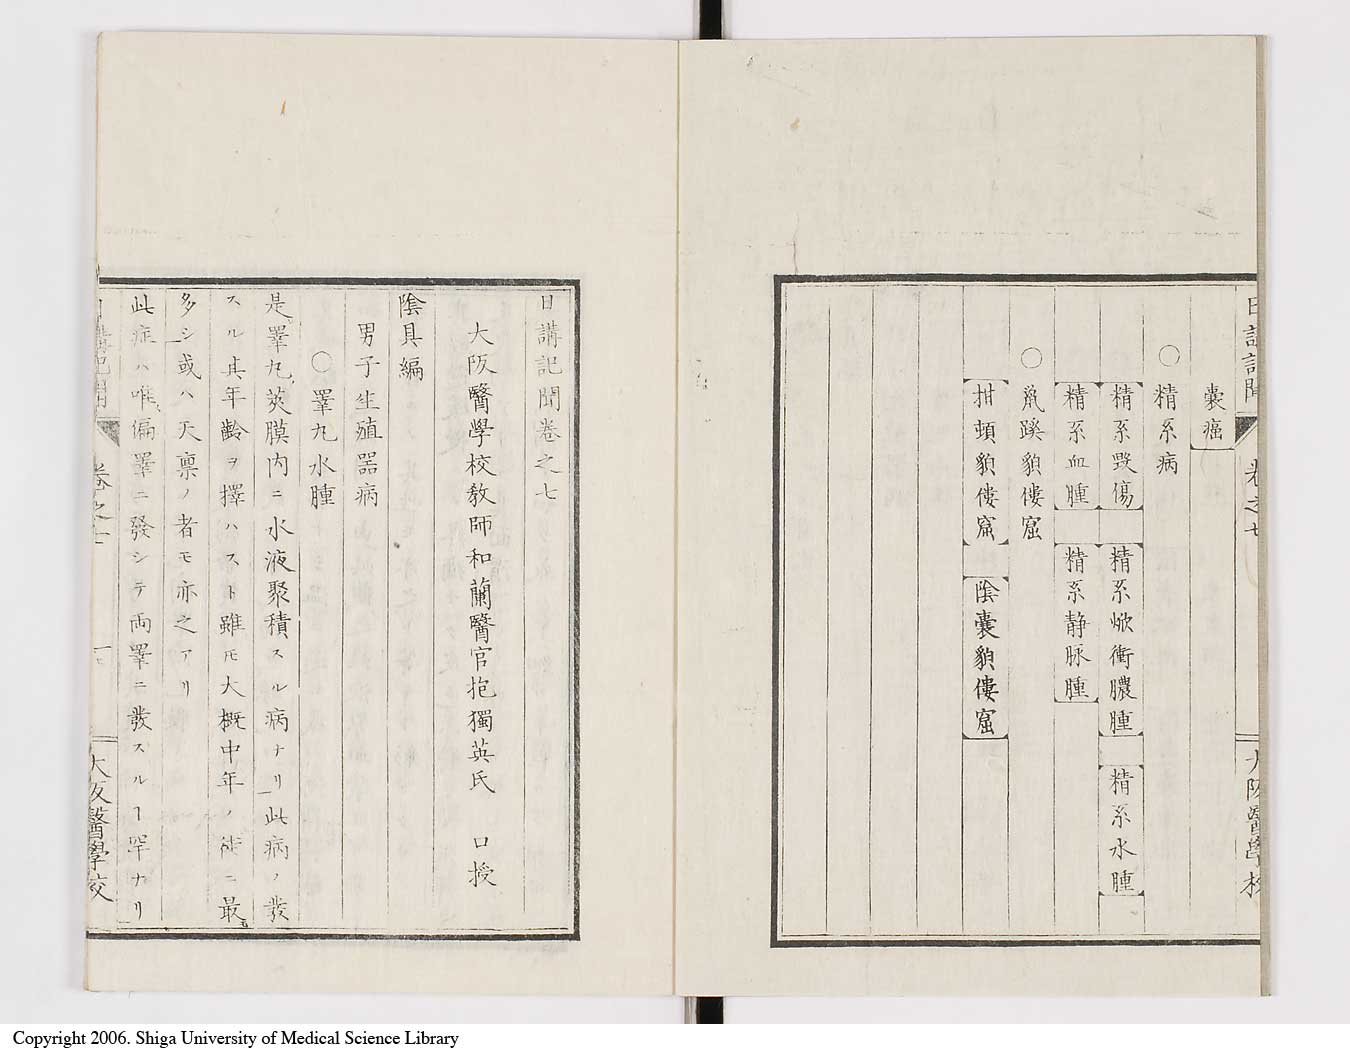 日講記聞 卷之七 大阪醫學校
囊癌
○ 精系病
精系毀傷 精系焮衝膿腫 精系水腫
精系血腫 精系静脉腫
○ 鼠蹊貌僂窟
拑頓貌僂窟 陰囊貌僂窟
日講記聞卷之七
大阪醫學校教師和蘭醫官抱獨英氏 口授
陰具編
男子生殖器病
○睪丸水腫
是睪丸莢膜内ニ水液聚積スル病ナリ此病ノ發
スル其年齡ヲ擇ハスト雖𪜈大概中年ノ徒ニ最モ
多シ或ハ天禀ノ者モ亦之アリ
此症ハ唯偏睪ニ發シテ両睪ニ發スルヿ罕ナリ
日講記聞 卷之七 一 大阪醫學校
Copyright 2006. Shiga University of Medical Science Library